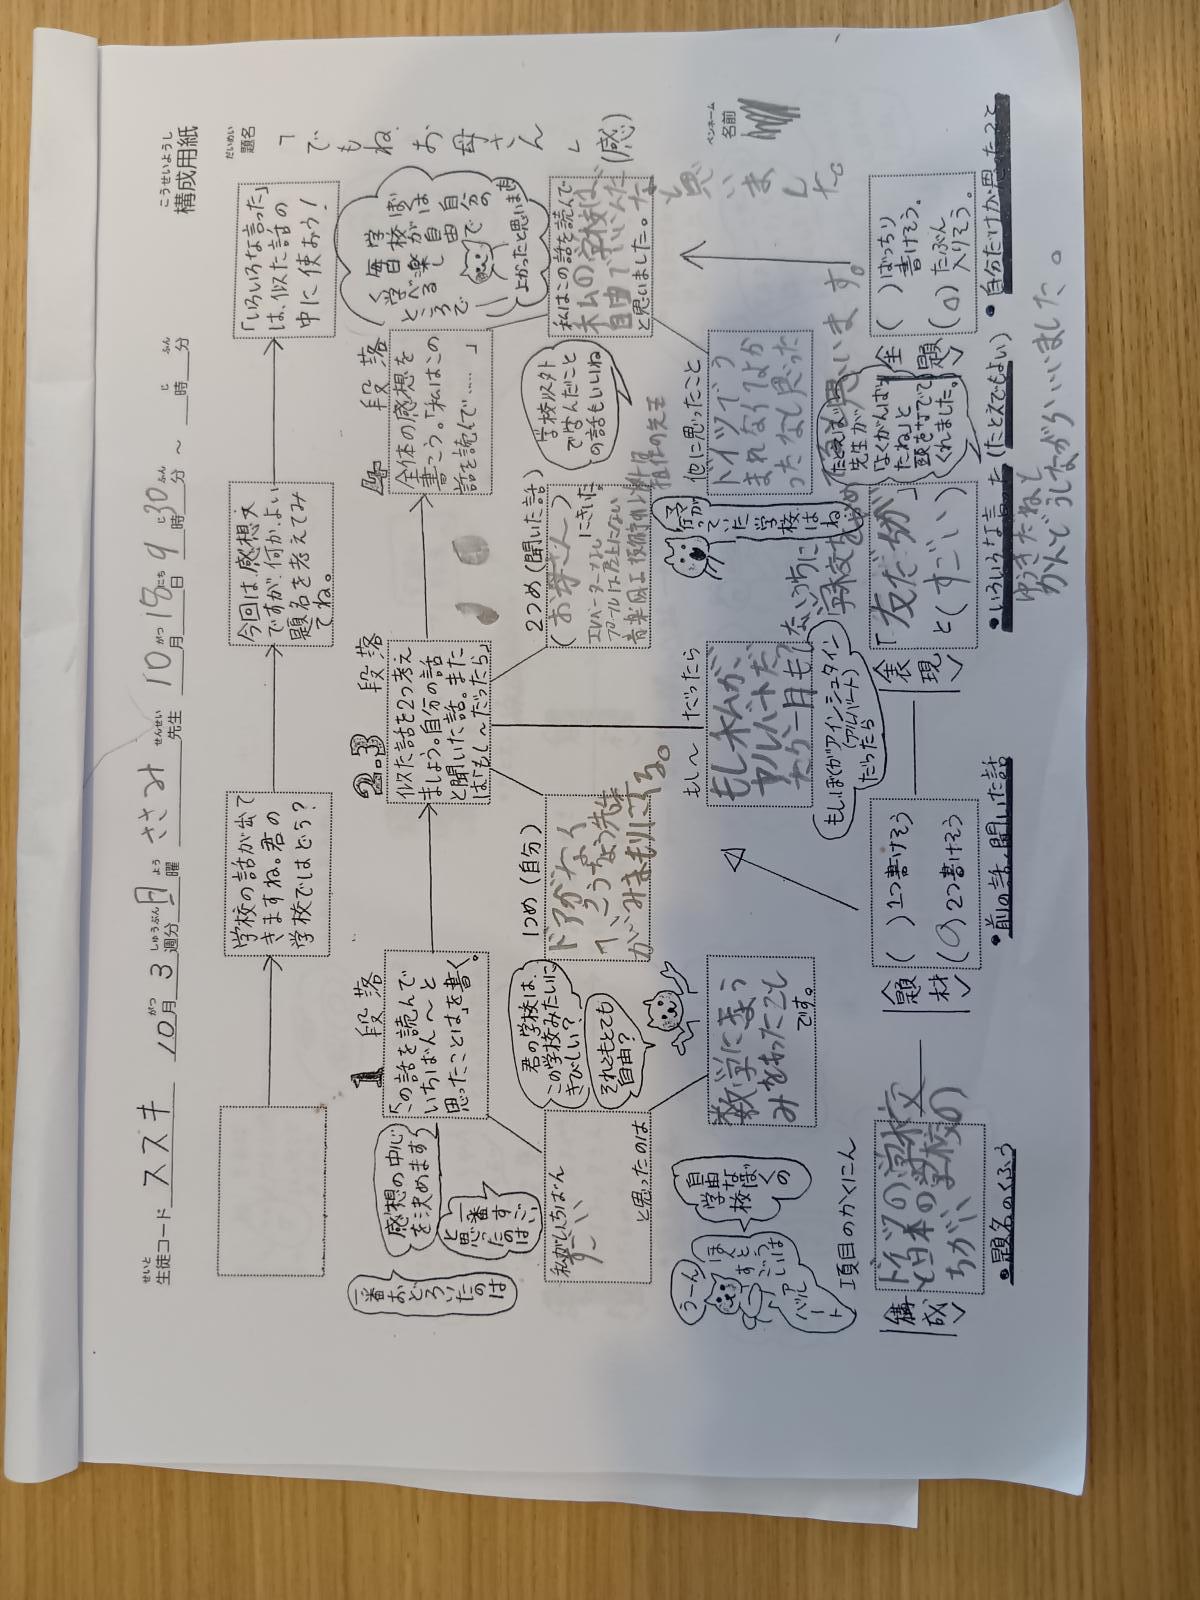 構成用紙
こうせいようし
生徒コード スズキ 10月 3週分 月曜 ささみ先生 10月18日 9時30分 ～ 時 分
せいと
がつ しゅうぶん よう せんせい がつ にち じ ふん じ ふん
題名
だいめい
「でもね、お母さん」(感)
ペンネーム
名前
学校の話が出て
きますね。君の
学校ではどう?
今回は、感想文
ですが、何か、よい
題名を考えてみ
てね。
「いろいろな言った」
は、似た話の
中に使おう!
1段落
「この話を読んで
いちばん～と
思ったことは」を書く。
感想の中心
を決めます
一番すごい
と思ったのは
一番おどろいたのは
私がいちばん
すごい
と思ったのは
君の学校は、
この学校みたいに
きびしい?
それともとても
自由?
数学にきょう
みをあったこと
です。
うーん
ほんとうに
すごいのは
アルバート
自由な
学校
ぼくの
2.3段落
似た話を2つ考え
ましょう。自分の話
と聞いた話。また
は「もし～だったら」
1つめ(自分)
ドアがなく
がみまもりにくる。
2つめ(聞いた話)
(お母さん)
にきいた
エレベーターなし
プールは屋上にない
音楽図工技術
担任の先生
もし～だったら
もし私が、
アルバートだっ
たら一日もし
ないうちに
学校をやめ
ると思います。
もしぼくがアインシュタイン
(アルバート)
だったら
ママが
行っていた学校は
ね
4段落
全体の感想を
書こう。「私はこの
話を読んで……」
ぼくは自分の
学校が自由で
毎日楽しく
学べるところで
よかったと思います
私はこの話を読んで
私の学校は、
自由でいいんだな
と思いました。
と思いました。
学校以外
で学んだこと
の話もいいね
他に思ったこと
ドイツでう
まれなくてよか
ったなと思った
項目のかくにん
構成
ドイツの学校
と日本の学校の
ちがい
・題名のくふう
題材
( )1つ書けそう
(○)2つ書けそう
・前の話、聞いた話
表現
「友だちが」
と(すごい)
たとえば
先生が
「よくがんばっ
たね」と
頭をなでて
くれました。
・いろいろな言った(たとえでもよい)
かんどうしながらいいました。
主題
( )ばっちり
書けそう。
(○)たぶん
入りそう。
・自分だけが思ったこと